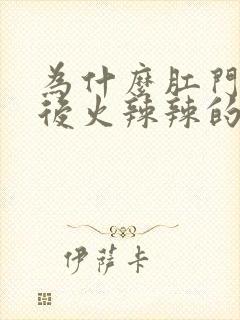 為什麼肛門
後火辣辣的
伊薩卡